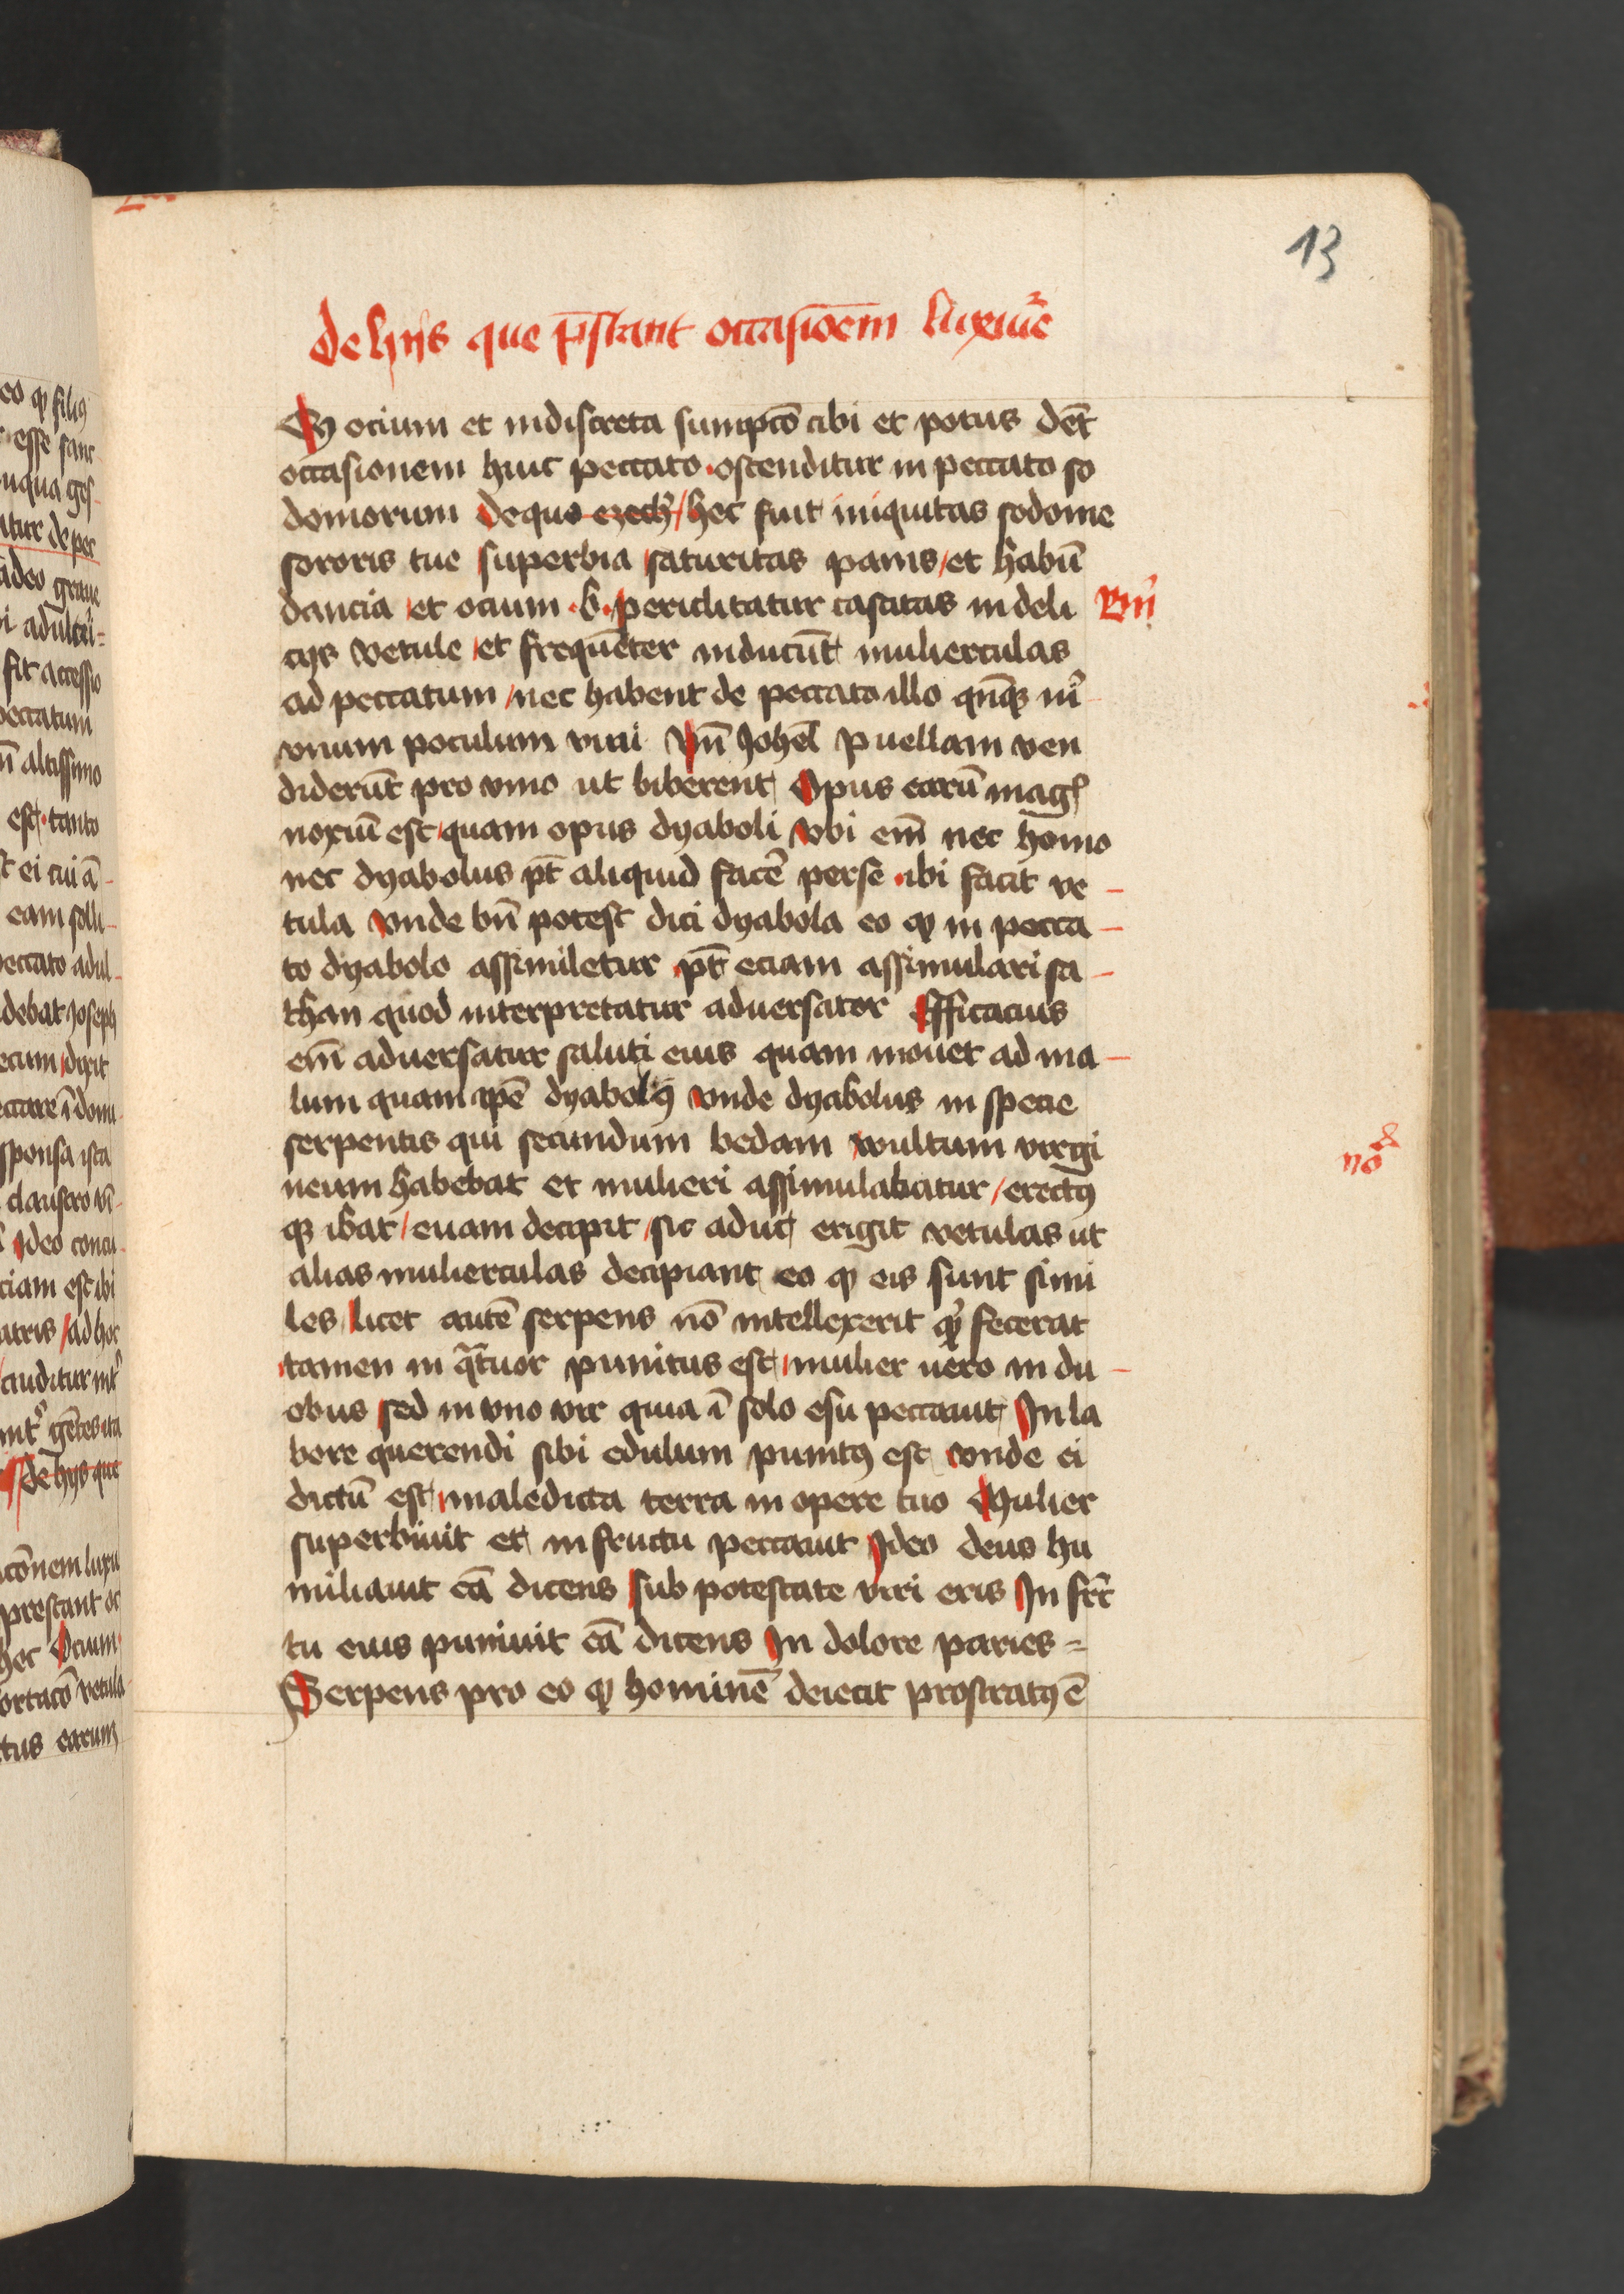 13
de hijs que p̄stant occasiōem luxurie
Qz ocium et indiscreta sumpcō cibi et potus dēt
occasionem huic peccato · ostenditur in peccato so
domorum De quo ezech / hec fuit iniquitas sodome
sororis tue superbia saturitas panis / et habū
dancia et ocium · b · periclitatur castitas in deli
Bn̄
cijs vetule / et frequēter inducūt mulierculas
ad peccatum / nec habent de peccato illo qn̄qz
vnum poculum vini Vn̄ Johel Puellam ven
diderūt pro vino ut biberent Opus earū magꝭ
noxiū est quam opus dyaboli Vbi em̄ nec homo
nec dyabolus pt̄ aliquid facē per se · ibi facit ve
tula Vnde bn̄ potest dici dyabola eo qꝫ in pecca
to dyabolo assimiletur pt̄ eciam assimulari sa
than quod interpretatur aduersator Efficacius
em̄ aduersatur saluti eius quam mouet ad ma
lum quam ipē dyabolꝰ Vnde dyabolus in specie
serpentis qui secundum bedam wultum virgi
noᵗᵃ
neum habebat et mulieri assimulabatur / erectꝰ
qꝫ ibat / euam decipit / sic aduc erigit vetulas ut
alias mulierculas decipiant eo qꝫ eis sunt simi
les / licet autē serpens nō intellexerit qꝫ fecerat
tamen in q̄tuor punitus est / mulier uero in du
obus sed in vno vir quia ī solo esu peccauit Jn la
bore querendi sibi edulum punitꝰ est vnde ei
dictū est / maledicta terra in opere tuo Mulier
superbiuit et in fructu peccauit Jdeo deus hu
miliauit eā dicens sub potestate viri eris Jn fruc
tu eius puniuit eā dicens Jn dolore paries =
Serpens pro eo qꝫ hominē deiecit prostratꝰ ē